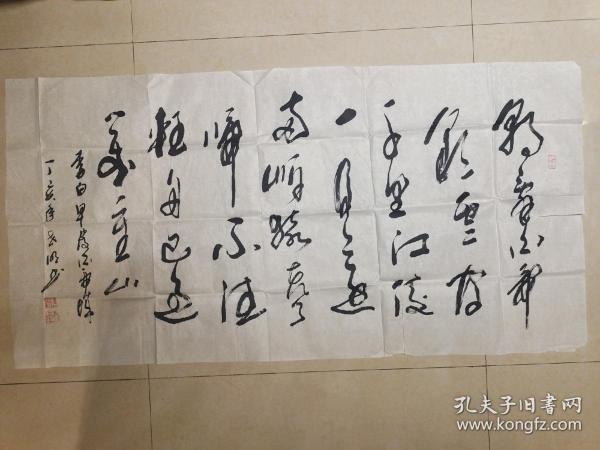 朝辞白帝
彩云间
千里江陵
一日还
两岸猿声
啼不住
轻舟已过
万重山
李白早发白帝城
丁亥年 明书
孔夫子旧书网
www.kongfz.com